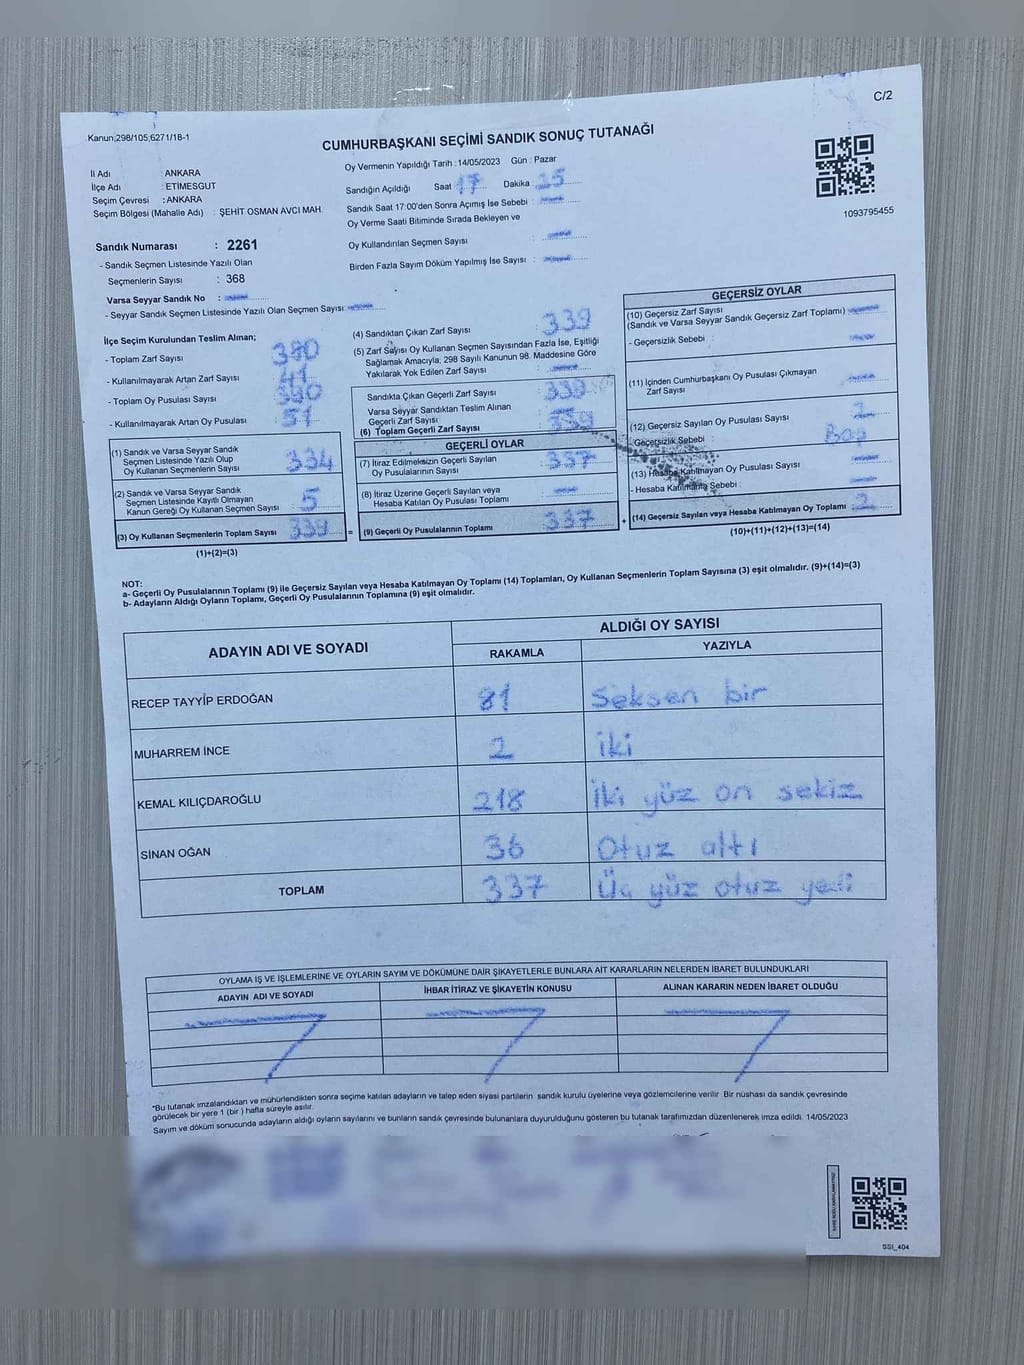 C/2
Kanun;298/105,6271/18-1
CUMHURBAŞKANI SEÇİMİ SANDIK SONUÇ TUTANAĞI
İl Adı : ANKARA
İlçe Adı : ETİMESGUT
Seçim Çevresi : ANKARA
Seçim Bölgesi (Mahalle Adı) : ŞEHİT OSMAN AVCI MAH.
Oy Vermenin Yapıldığı Tarih : 14/05/2023 Gün : Pazar
Sandığın Açıldığı Saat 17 Dakika : 25
Sandık Saat 17:00'den Sonra Açımış İse Sebebi :
Oy Verme Saati Bitiminde Sırada Bekleyen ve
Oy Kullandırılan Seçmen Sayısı :
Birden Fazla Sayım Döküm Yapılmış İse Sayısı :
1093795455
Sandık Numarası : 2261
- Sandık Seçmen Listesinde Yazılı Olan
Seçmenlerin Sayısı : 368
Varsa Seyyar Sandık No :
- Seyyar Sandık Seçmen Listesinde Yazılı Olan Seçmen Sayısı:
İlçe Seçim Kurulundan Teslim Alınan;
- Toplam Zarf Sayısı 380
- Kullanılmayarak Artan Zarf Sayısı 41
- Toplam Oy Pusulası Sayısı
- Kullanılmayarak Artan Oy Pusulası
(1) Sandık ve Varsa Seyyar Sandık
Seçmen Listesinde Yazılı Olup
Oy Kullanan Seçmenlerin Sayısı : 334
(2) Sandık ve Varsa Seyyar Sandık
Seçmen Listesinde Kayıtlı Olmayan
Kanun Gereği Oy Kullanan Seçmen Sayısı : 5
(3) Oy Kullanan Seçmenlerin Toplam Sayısı : 339
(1)+(2)=(3)
(4) Sandıktan Çıkan Zarf Sayısı : 339
(5) Zarf Sayısı Oy Kullanan Seçmen Sayısından Fazla İse, Eşitliği
Sağlamak Amacıyla; 298 Sayılı Kanunun 98. Maddesine Göre
Yakılarak Yok Edilen Zarf Sayısı :
Sandıkta Çıkan Geçerli Zarf Sayısı : 339
Varsa Seyyar Sandıktan Teslim Alınan
Geçerli Zarf Sayısı
(6) Toplam Geçerli Zarf Sayısı : 339
GEÇERLİ OYLAR
(7) İtiraz Edilmeksizin Geçerli Sayılan
Oy Pusulasının Sayısı : 337
(8) İtiraz Üzerine Geçerli Sayılan veya
Hesaba Katılan Oy Pusulası Toplamı :
= (9) Geçerli Oy Pusulalarının Toplamı : 337 +
GEÇERSİZ OYLAR
(10) Geçersiz Zarf Sayısı
(Sandık ve Varsa Seyyar Sandık Geçersiz Zarf Toplamı)
- Geçersizlik Sebebi :
(11) İçinden Cumhurbaşkanı Oy Pusulası Çıkmayan
Zarf Sayısı :
(12) Geçersiz Sayılan Oy Pusulası Sayısı : 2
- Geçersizlik Sebebi : Boş
(13) Hesaba Katılmayan Oy Pusulası Sayısı :
- Hesaba Katılmama Sebebi :
(14) Geçersiz Sayılan veya Hesaba Katılmayan Oy Toplamı : 2
(10)+(11)+(12)+(13)=(14)
NOT:
a- Geçerli Oy Pusulalarının Toplamı (9) ile Geçersiz Sayılan veya Hesaba Katılmayan Oy Toplamı (14) Toplamları, Oy Kullanan Seçmenlerin Toplam Sayısına (3) eşit olmalıdır. (9)+(14)=(3)
b- Adayların Aldığı Oyların Toplamı, Geçerli Oy Pusulalarının Toplamına (9) eşit olmalıdır.
ADAYIN ADI VE SOYADI
ALDIĞI OY SAYISI
RAKAMLA YAZIYLA
RECEP TAYYİP ERDOĞAN 81 Seksen bir
MUHARREM İNCE 2 iki
KEMAL KILIÇDAROĞLU 218 İki yüz on sekiz
SİNAN OĞAN 36 Otuz altı
TOPLAM 337 Üç yüz otuz yedi
OYLAMA İŞ VE İŞLEMLERİNE VE OYLARIN SAYIM VE DÖKÜMÜNE DAİR ŞİKAYETLERLE BUNLARA AİT KARARLARIN NELERDEN İBARET BULUNDUKLARI
ADAYIN ADI VE SOYADI İHBAR İTİRAZ VE ŞİKAYETİN KONUSU ALINAN KARARIN NEDEN İBARET OLDUĞU
*Bu tutanak imzalandıktan ve mühürlendikten sonra seçime katılan adayların ve talep eden siyasi partilerin sandık kurulu üyelerine veya gözlemcilerine verilir. Bir nüshası da sandık çevresinde
görülecek bir yere 1 (bir ) hafta süreyle asılır.
Sayım ve döküm sonucunda adayların aldığı oyların sayılarını ve bunların sandık çevresinde bulunanlara duyurulduğunu gösteren bu tutanak tarafımızdan düzenlenerek imza edildi. 14/05/2023
SSI_404